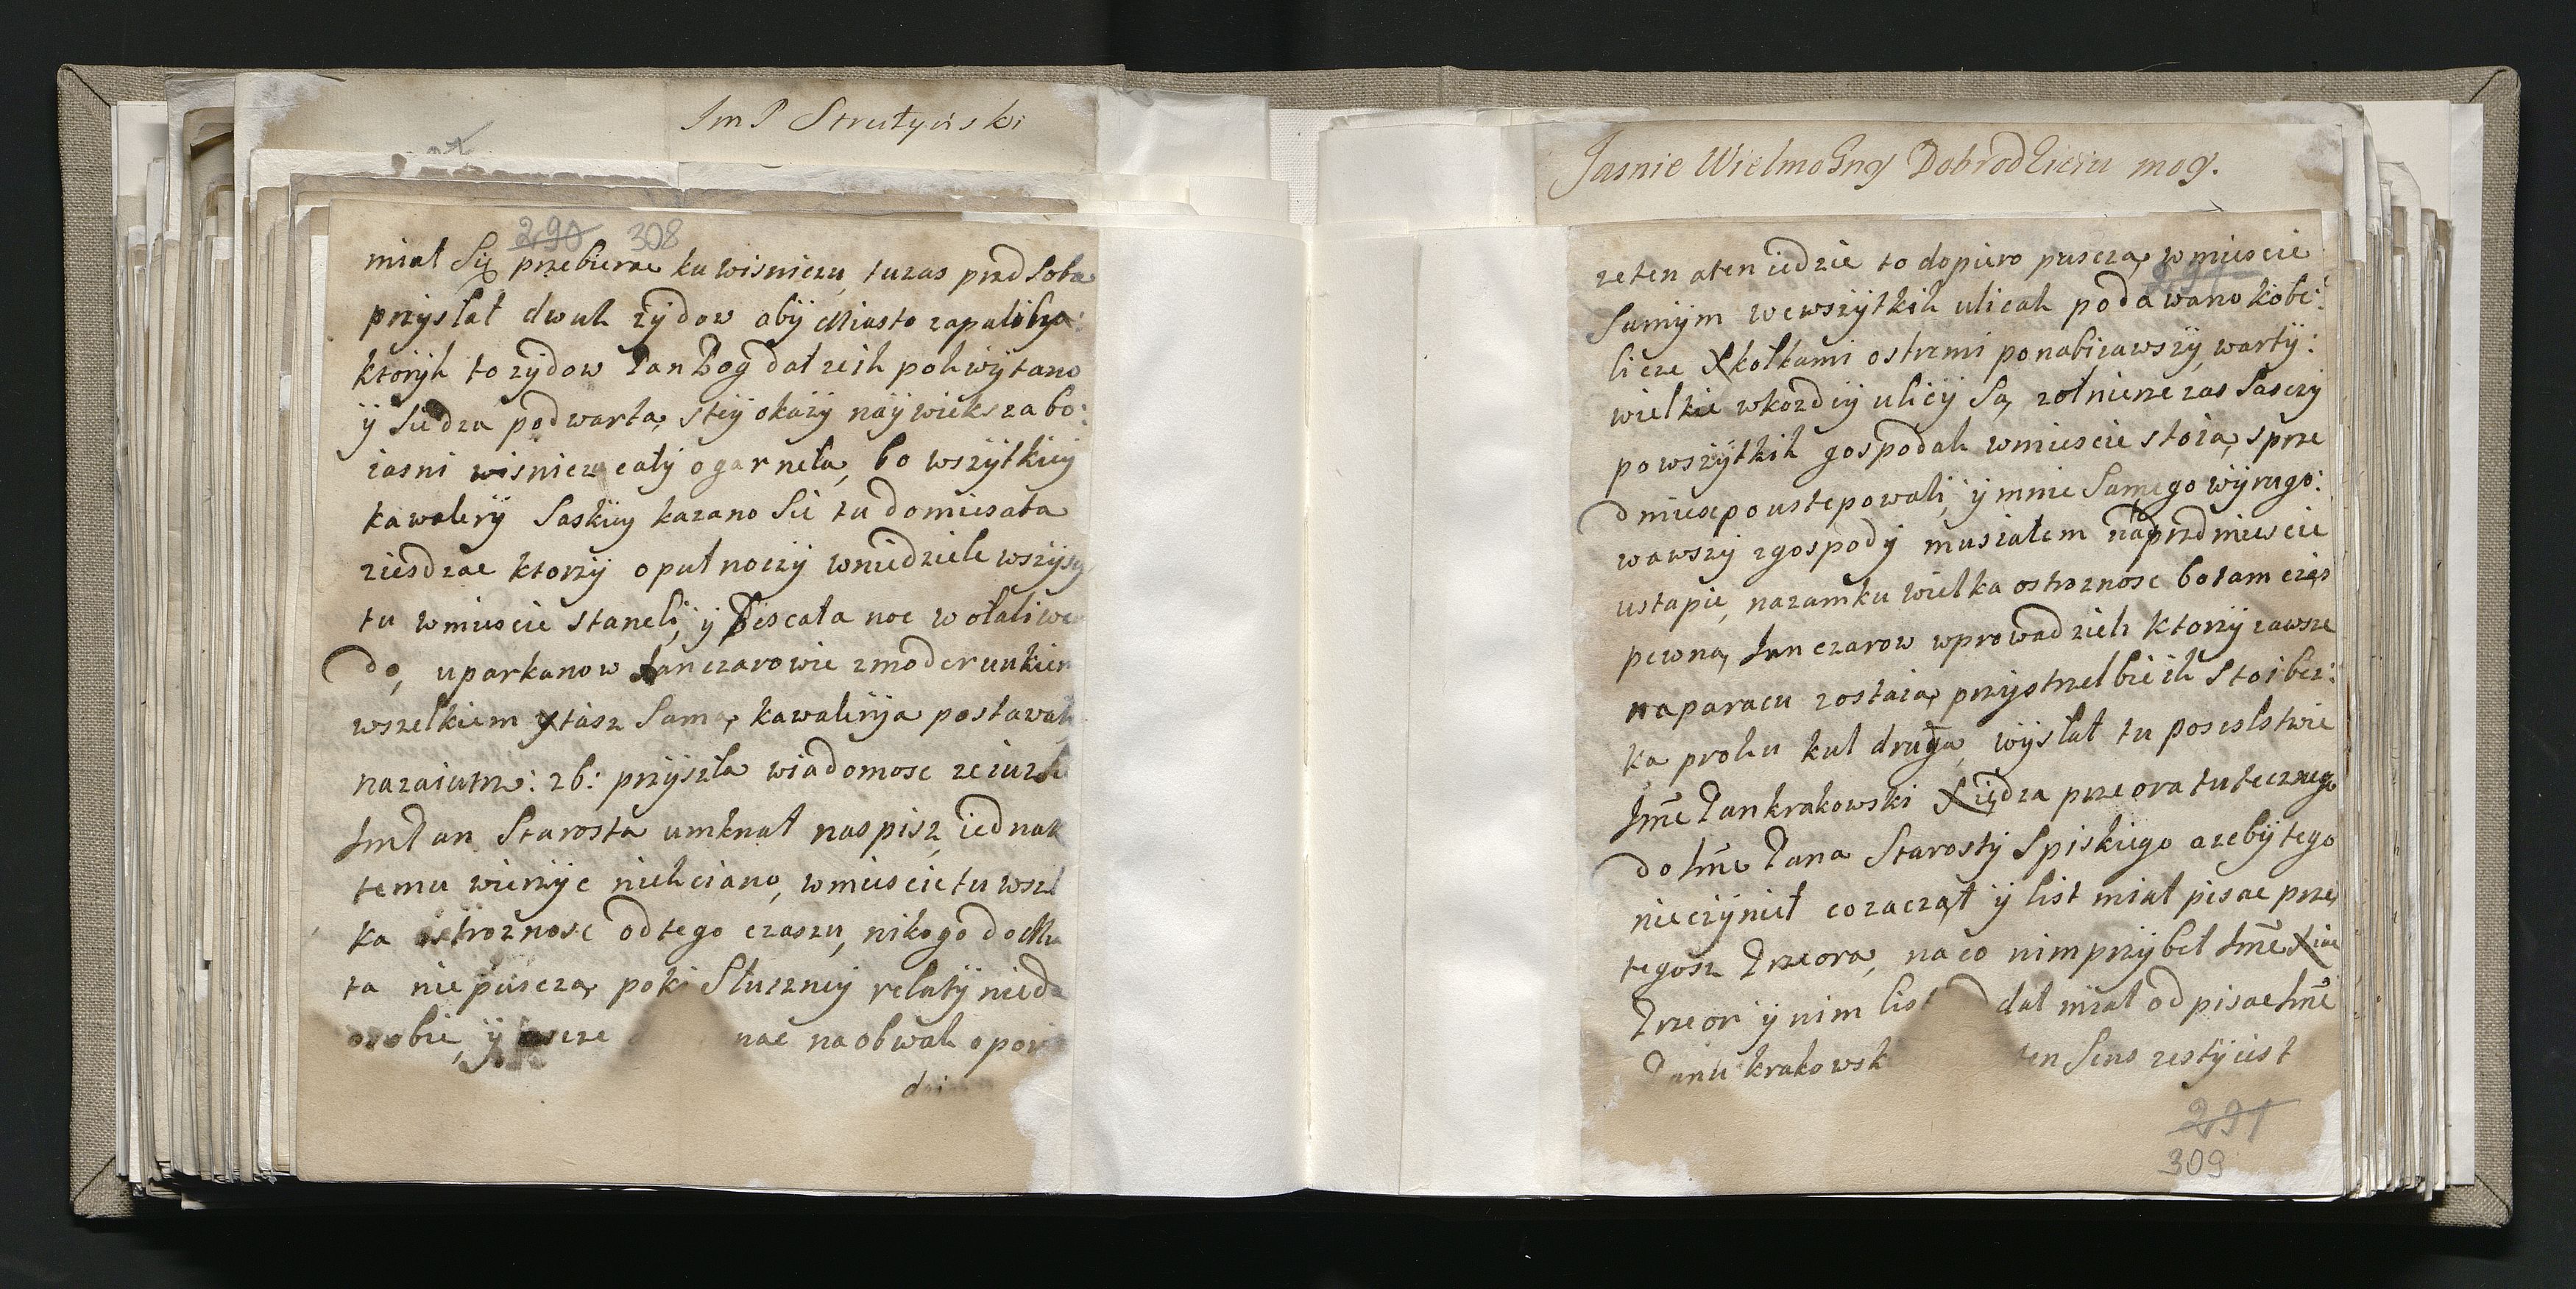 Im P Strutyński
290 308
miał Się przebierac ku wisniczu, tuzas przed Soba
przysłał dwuh zydow aby Miasto zapalilya:
ktoryh to zydow Pan Bog dał zeih pohwytano
y Siedza pod warta, stey okazy naywieksza bo:
iasni wisnicz cały ogarneła, bo wszytkiey
kawalery Saskiey kazano Sie tu do miasta
ziesdzac ktorzy o puł noczy wniedziele wszyscy
tu wmiescie staneli, y Bescała noc wołali wer
do, uparkanow Janczarowie zmoderunkiem
wszelkiem ytasz Sama, kawaleryja postawali
nazaiutrz: 26: przyszła wiadomosc ze iuz
Jm Pan Starosta umknał naspisz, iednak
temu wierzyc niehciano, wmiescie tu wszel
ka ostroznosc od tego czaszu, nikogo do Mia
ta niepuscza, poki Słuszney relaty nieda
osobie, y nac na obwah opow
Jasnie Wielmozny Dobrodzieiu moy.
291
ze ten aten iedzie to dopiero puscza, wmiescie
Samym wewszytkih ulicah podawano kobe:
lice Xkołkami ostremi ponabiiawszy, warty:
wielkie wkozdey ulicy Sa, zołnierze zas Sasczy
powszytkih gospodah wmiescie stoia, sprze
dmiesc poustepowali, y mnie Samego wyrugo:
wawszy zgospody musiałem naprzedmiescie
ustapic, nazamku wielka ostroznosc botam częs
pewna, Janczarow wprowadzieli ktorzy zawsze
naparacu zostaia, przystrzelbie ih Stoi bec:
ka prohu kul druga, wysłał tu poselstwie
Jmē Pan krakowski Xiędza przeora tuteczneg
do Jmē Pana Starosty Spiskiego azeby tego
nieczynieł cozaczął y list miał pisac prze,
tegosz Przeora, naco nim przybeł Jmē Xiac
Przeor y nim list dał miał odpisac Jmē
Panu krakowsk ten Sens zesty iest
291
309